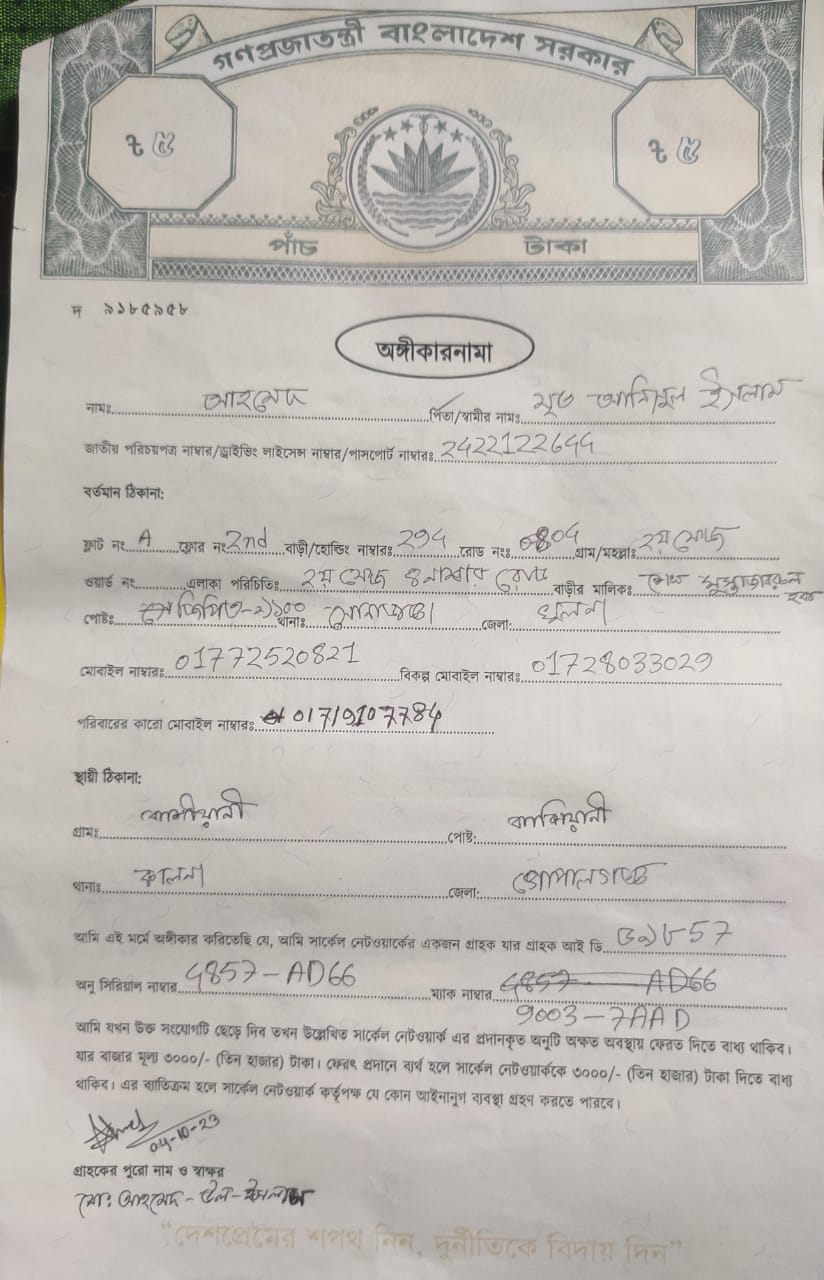 গণপ্রজাতন্ত্রী বাংলাদেশ সরকার
৳ ৫ ৳ ৫
পাঁচ টাকা
দ ৯১৮৫৯৫৮
অঙ্গীকারনামা
নামঃ আহমেদ পিতা/স্বামীর নামঃ মৃত ইসলাম
জাতীয় পরিচয়পত্র নাম্বার/ড্রাইভিং লাইসেন্স নাম্বার/পাসপোর্ট নাম্বারঃ
বর্তমান ঠিকানা:
ফ্লাট নং A ফ্লোর নং 2nd বাড়ী/হোল্ডিং নাম্বারঃ রোড নংঃ গ্রাম/মহল্লাঃ ২য় ফেজ
ওয়ার্ড নং এলাকা পরিচিতিঃ ২য় ফেজ বাড়ীর মালিকঃ শেখ হক
পোষ্টঃ থানাঃ সোনাডাঙ্গা জেলা: খুলনা
মোবাইল নাম্বারঃ 01772520821 বিকল্প মোবাইল নাম্বারঃ 01728033029
পরিবারের কারো মোবাইল নাম্বারঃ
স্থায়ী ঠিকানা:
গ্রামঃ পোষ্ট:
থানাঃ কালনা জেলা: গোপালগঞ্জ
আমি এই মর্মে অঙ্গীকার করিতেছি যে, আমি সার্কেল নেটওয়ার্কের একজন গ্রাহক যার গ্রাহক আই ডি
অনু সিরিয়াল নাম্বার 4857-AD66 ম্যাক নাম্বার 4857 AD66
9003-7AAD
আমি যখন উক্ত সংযোগটি ছেড়ে দিব তখন উল্লেখিত সার্কেল নেটওয়ার্ক এর প্রদানকৃত অনুটি অক্ষত অবস্থায় ফেরত দিতে বাধ্য থাকিব।
যার বাজার মূল্য ৩০০০/- (তিন হাজার) টাকা। ফেরৎ প্রদানে ব্যর্থ হলে সার্কেল নেটওয়ার্ককে ৩০০০/- (তিন হাজার) টাকা দিতে বাধ্য
থাকিব। এর ব্যতিক্রম হলে সার্কেল নেটওয়ার্ক কর্তৃপক্ষ যে কোন আইনানুগ ব্যবস্থা গ্রহণ করতে পারবে।
04-10-23
গ্রাহকের পুরো নাম ও স্বাক্ষর
মো: আহমেদ-উল-ইসলাম
"দেশপ্রেমের শপথ নিন, দুর্নীতিকে বিদায় দিন"